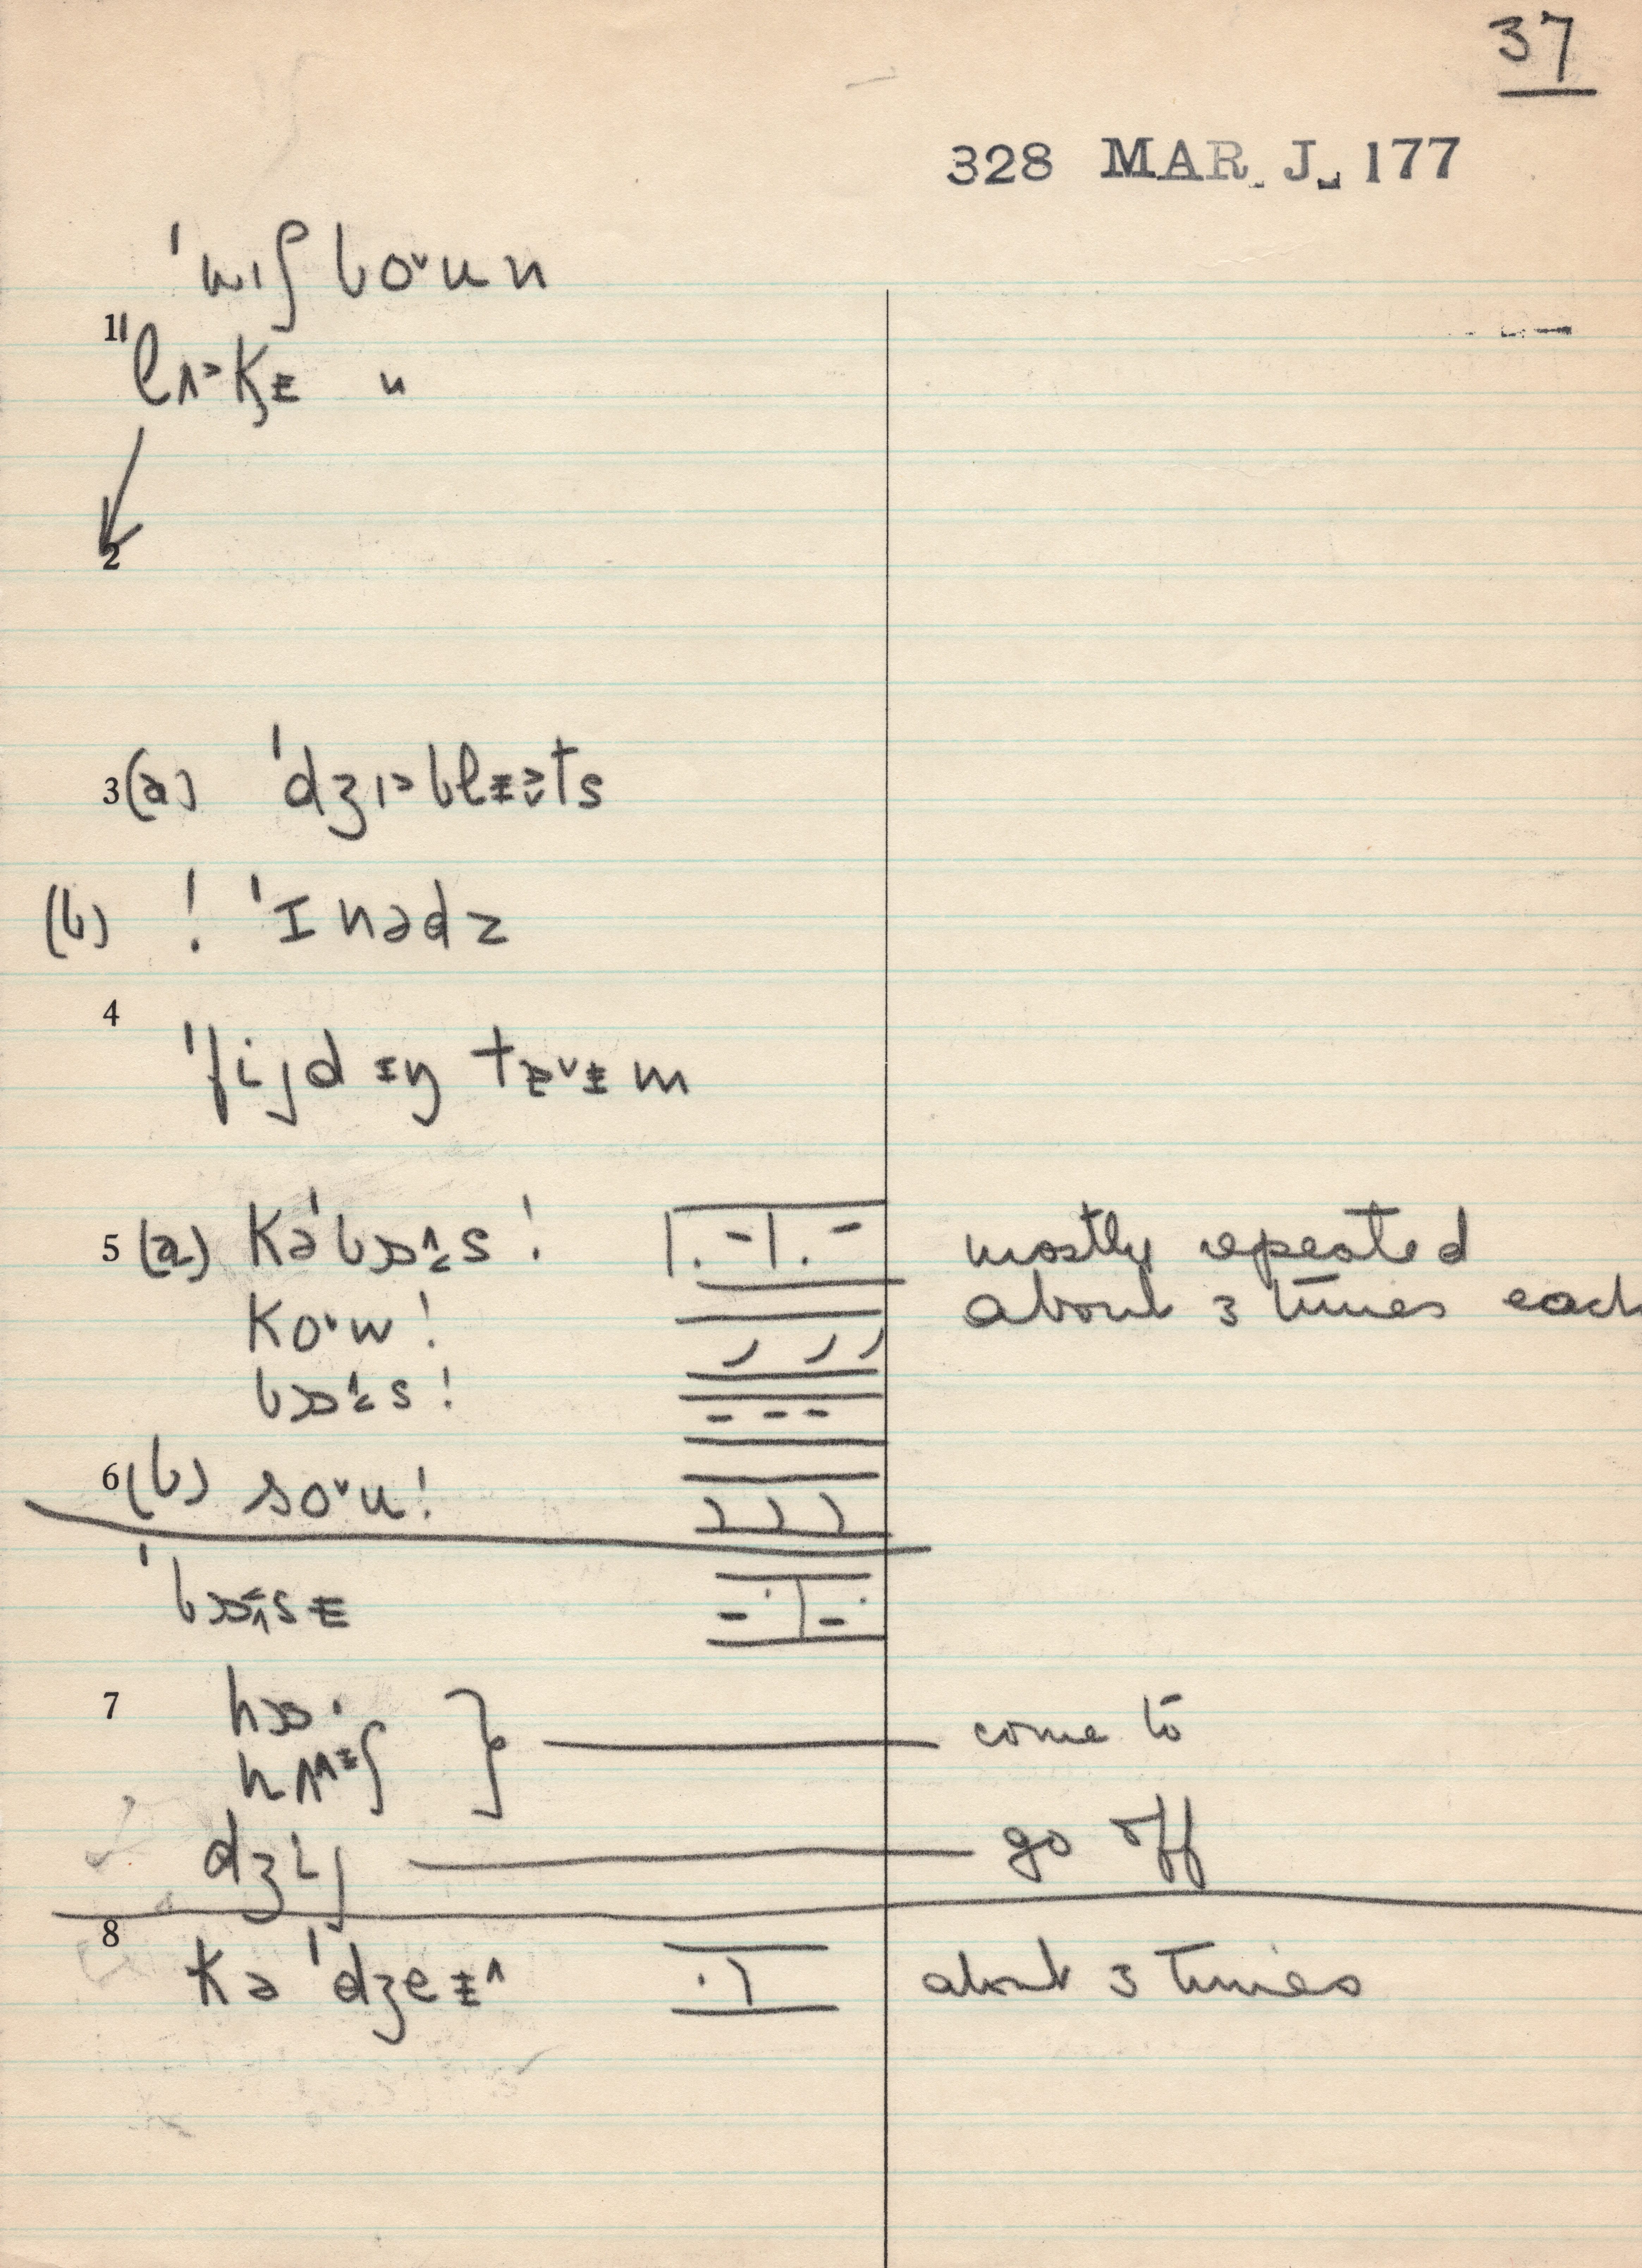 37
328 MAR. J. 177
ˈwɪʃboˇun
1 ˈlʌ˃k̹ᵻ "
2
3 (a) ˈdʒɪ˃blᵻts
(b) ! ˈɪnədz
4
ˈfijdɪŋ tᵻˇᵻm
5 (a) kəˈbɔs !
mostly repeated
about 3 times each
koˇw !
bɔs !
6 (b) soˇu !
ˈbɔsᵻ
7
come to
dʒij
go off
8
kə ˈdʒeᵻ˄
about 3 times